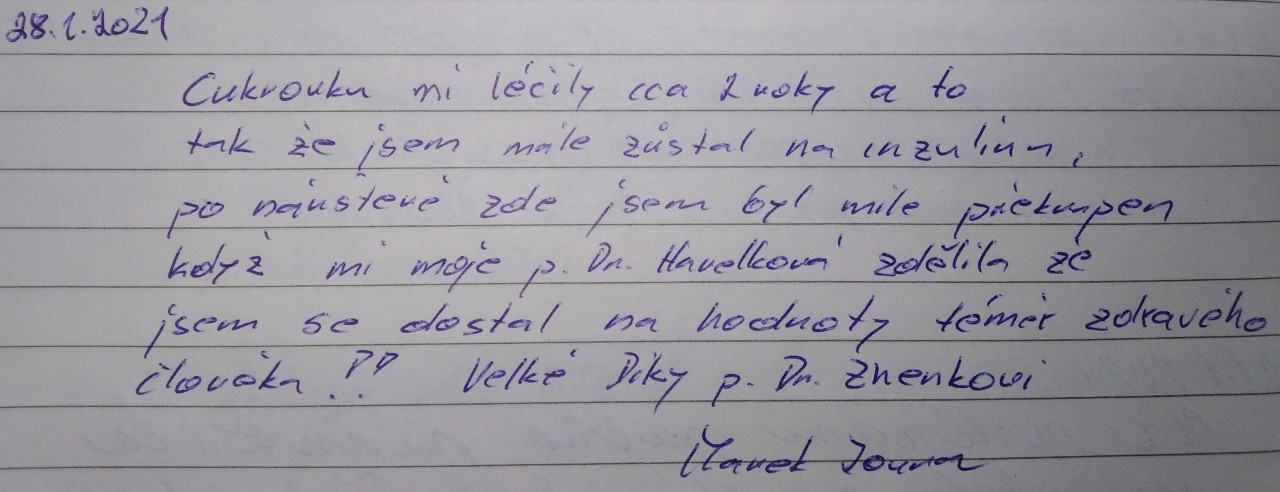 28.1.2021
Cukrovku mi léčily cca 2 roky a to
tak že jsem málé zůstal na inzulínu,
po návštěvě zde jsem byl mile překvapen
když mi moje p. Dr. Havelková zdělila že
jsem se dostal na hodnoty téměř zdravého
člověka!! Velké Díky p. Dr. Zhenkovi
Marek